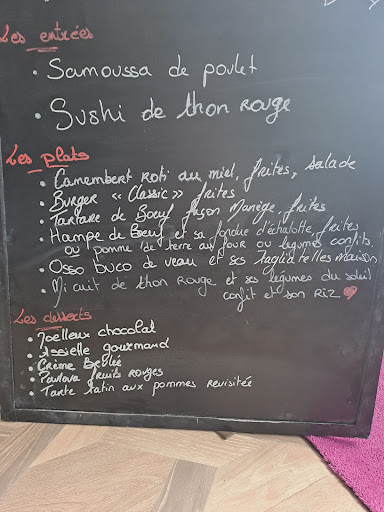 Les entrées
• Samoussa de poulet
• Sushi de thon Rouge
Les plats
• Camembert Roti au miel, frites, salade
• Burger « Classic » frites
• Tartare de Boeuf façon Manège, frites
• Hampe de Boeuf et sa fondue d'échalotte, frites
ou pomme de terre au four ou legumes confits.
• Osso buco de veau et ses tagliatelles maison
• Mi cuit de thon Rouge et ses légumes du soleil
confit et son Riz
Les desserts
• Moelleux chocolat
• Assiette gourmand
• Crème Brûlée
• Pavlova fruits rouges
• Tarte tatin aux pommes revisitée